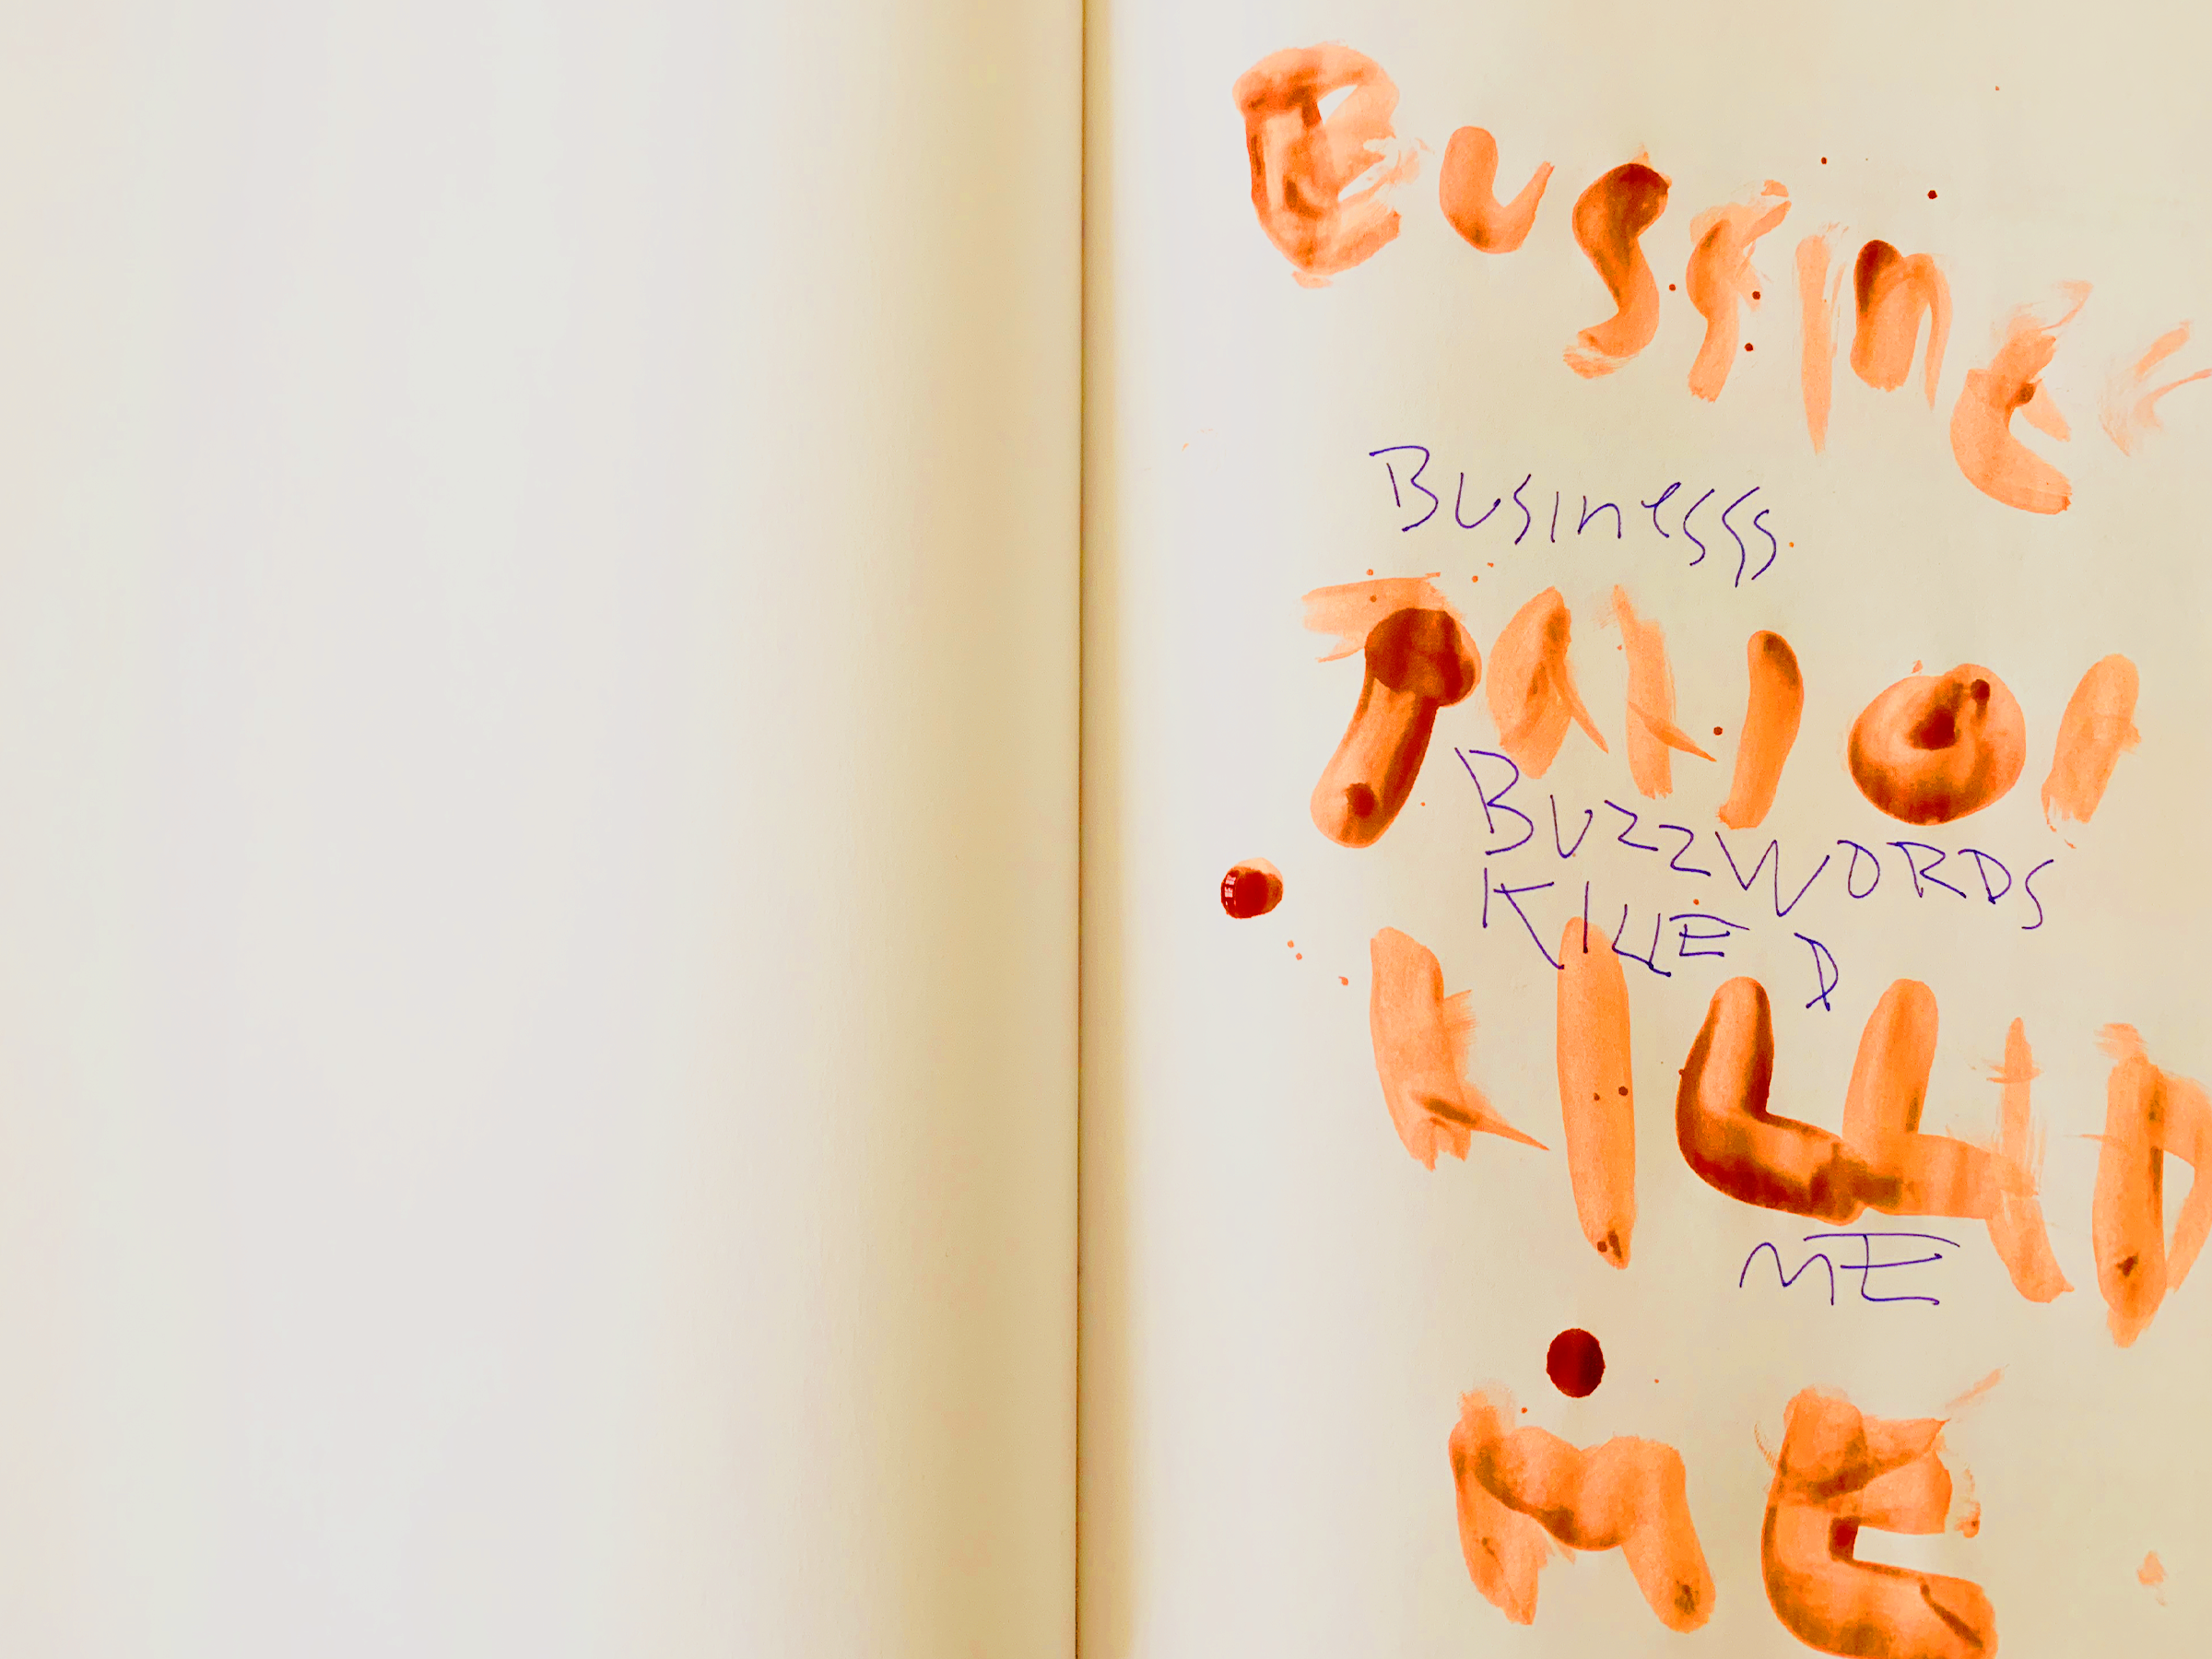 Bussines
Businesss
Buzzwords
KILLED
KILLED
ME
ME